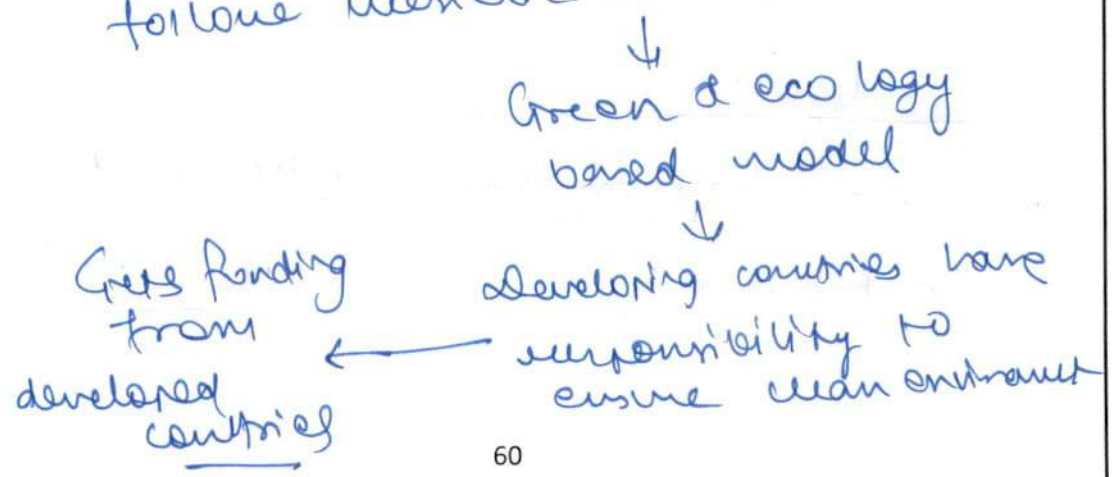 Green & ecology
based model
Developing countries have
responsibility to
ensure clean enviroment
Gets funding
from
developed
countries
60